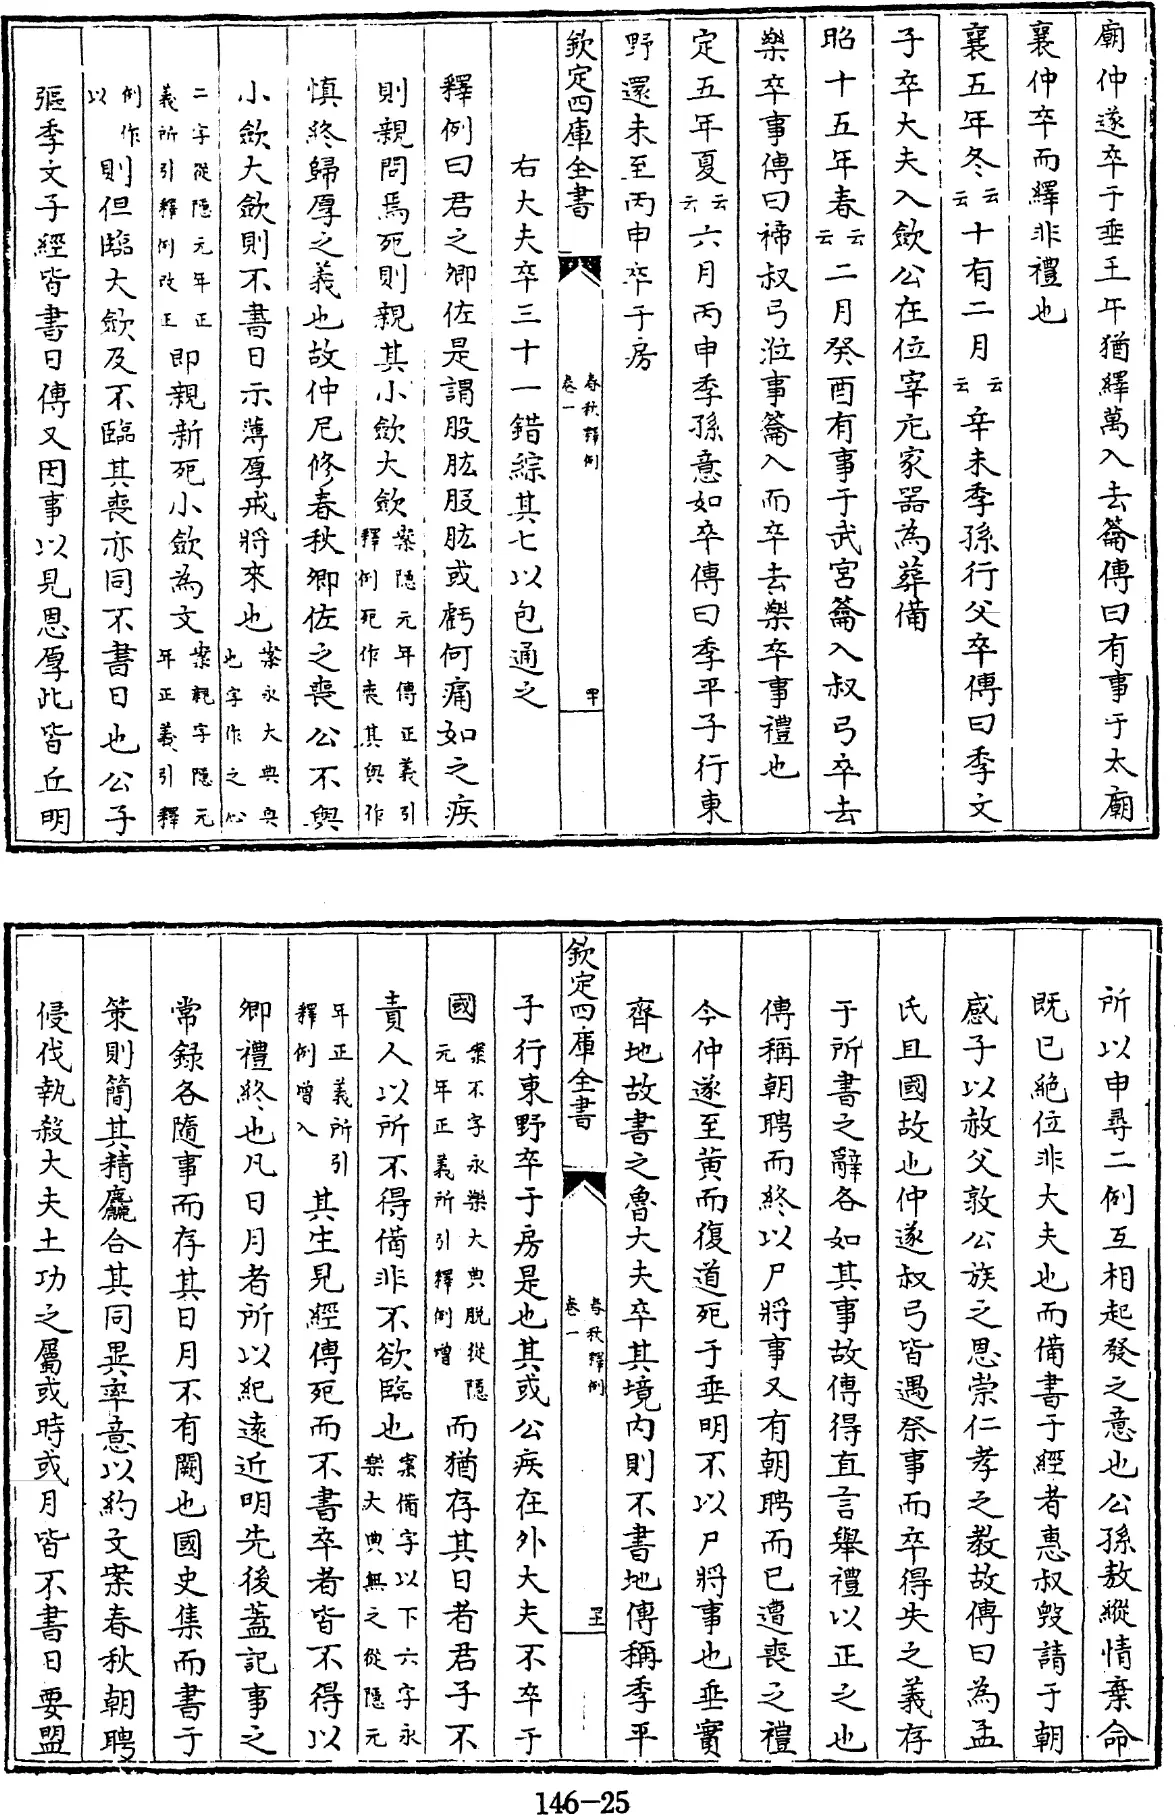 廟仲遂卒于垂壬午猶繹萬入去籥傳曰有事于太廟
襄仲卒而繹非禮也
襄五年冬云云十有二月云云辛未季孫行父卒傳曰季文
子卒大夫入斂公在位宰庀家器為葬備
昭十五年春云云二月癸酉有事于武宮籥入叔弓卒去
樂卒事傳曰禘叔弓涖事籥入而卒去樂卒事禮也
定五年夏云云六月丙申季孫意如卒傳曰季平子行東
野還未至丙申卒于房
欽定四庫全書
春秋釋例
卷一
右大夫卒三十一錯綜其七以包通之
釋例曰君之卿佐是謂股肱股肱或虧何痛如之疾
則親問焉死則親其小斂大斂案隱元年傳正義引釋例死作喪其與作
慎終歸厚之義也故仲尼修春秋卿佐之喪公不與
小斂大斂則不書日示薄厚戒將來也案永大典與也字作之心
二字從隱元年正義所引釋例改正即親新死小斂為文案親字隱元年正義引釋
例作以則但臨大斂及不臨其喪亦同不書日也公子
彄季文子經皆書日傳又因事以見恩厚此皆丘明
所以申尋二例互相起發之意也公孫敖縱情棄命
既已絶位非大夫也而備書于經者惠叔毀請于朝
感子以赦父敦公族之恩崇仁孝之教故傳曰為孟
氏且國故也仲遂叔弓皆遇祭事而卒得失之義存
于所書之辭各如其事故傳得直言舉禮以正之也
傳稱朝聘而終以尸將事又有朝聘而已遭喪之禮
今仲遂至黄而復道死于垂明不以尸將事也垂實
齊地故書之魯大夫卒其境内則不書地傳稱季平
欽定四庫全書
春秋釋例
卷一
子行東野卒于房是也其或公疾在外大夫不卒于
國案不字永樂大典脱從隱元年正義所引釋例增而猶存其日者君子不
責人以所不得備非不欲臨也案備字以下六字永樂大典無之從隱元
年正義所引釋例增入其生見經傳死而不書卒者皆不得以
卿禮終也凡日月者所以紀遠近明先後蓋記事之
常録各隨事而存其日月不有闕也國史集而書于
策則簡其精麤合其同異率意以約文案春秋朝聘
侵伐執殺大夫土功之屬或時或月皆不書日要盟
146-25